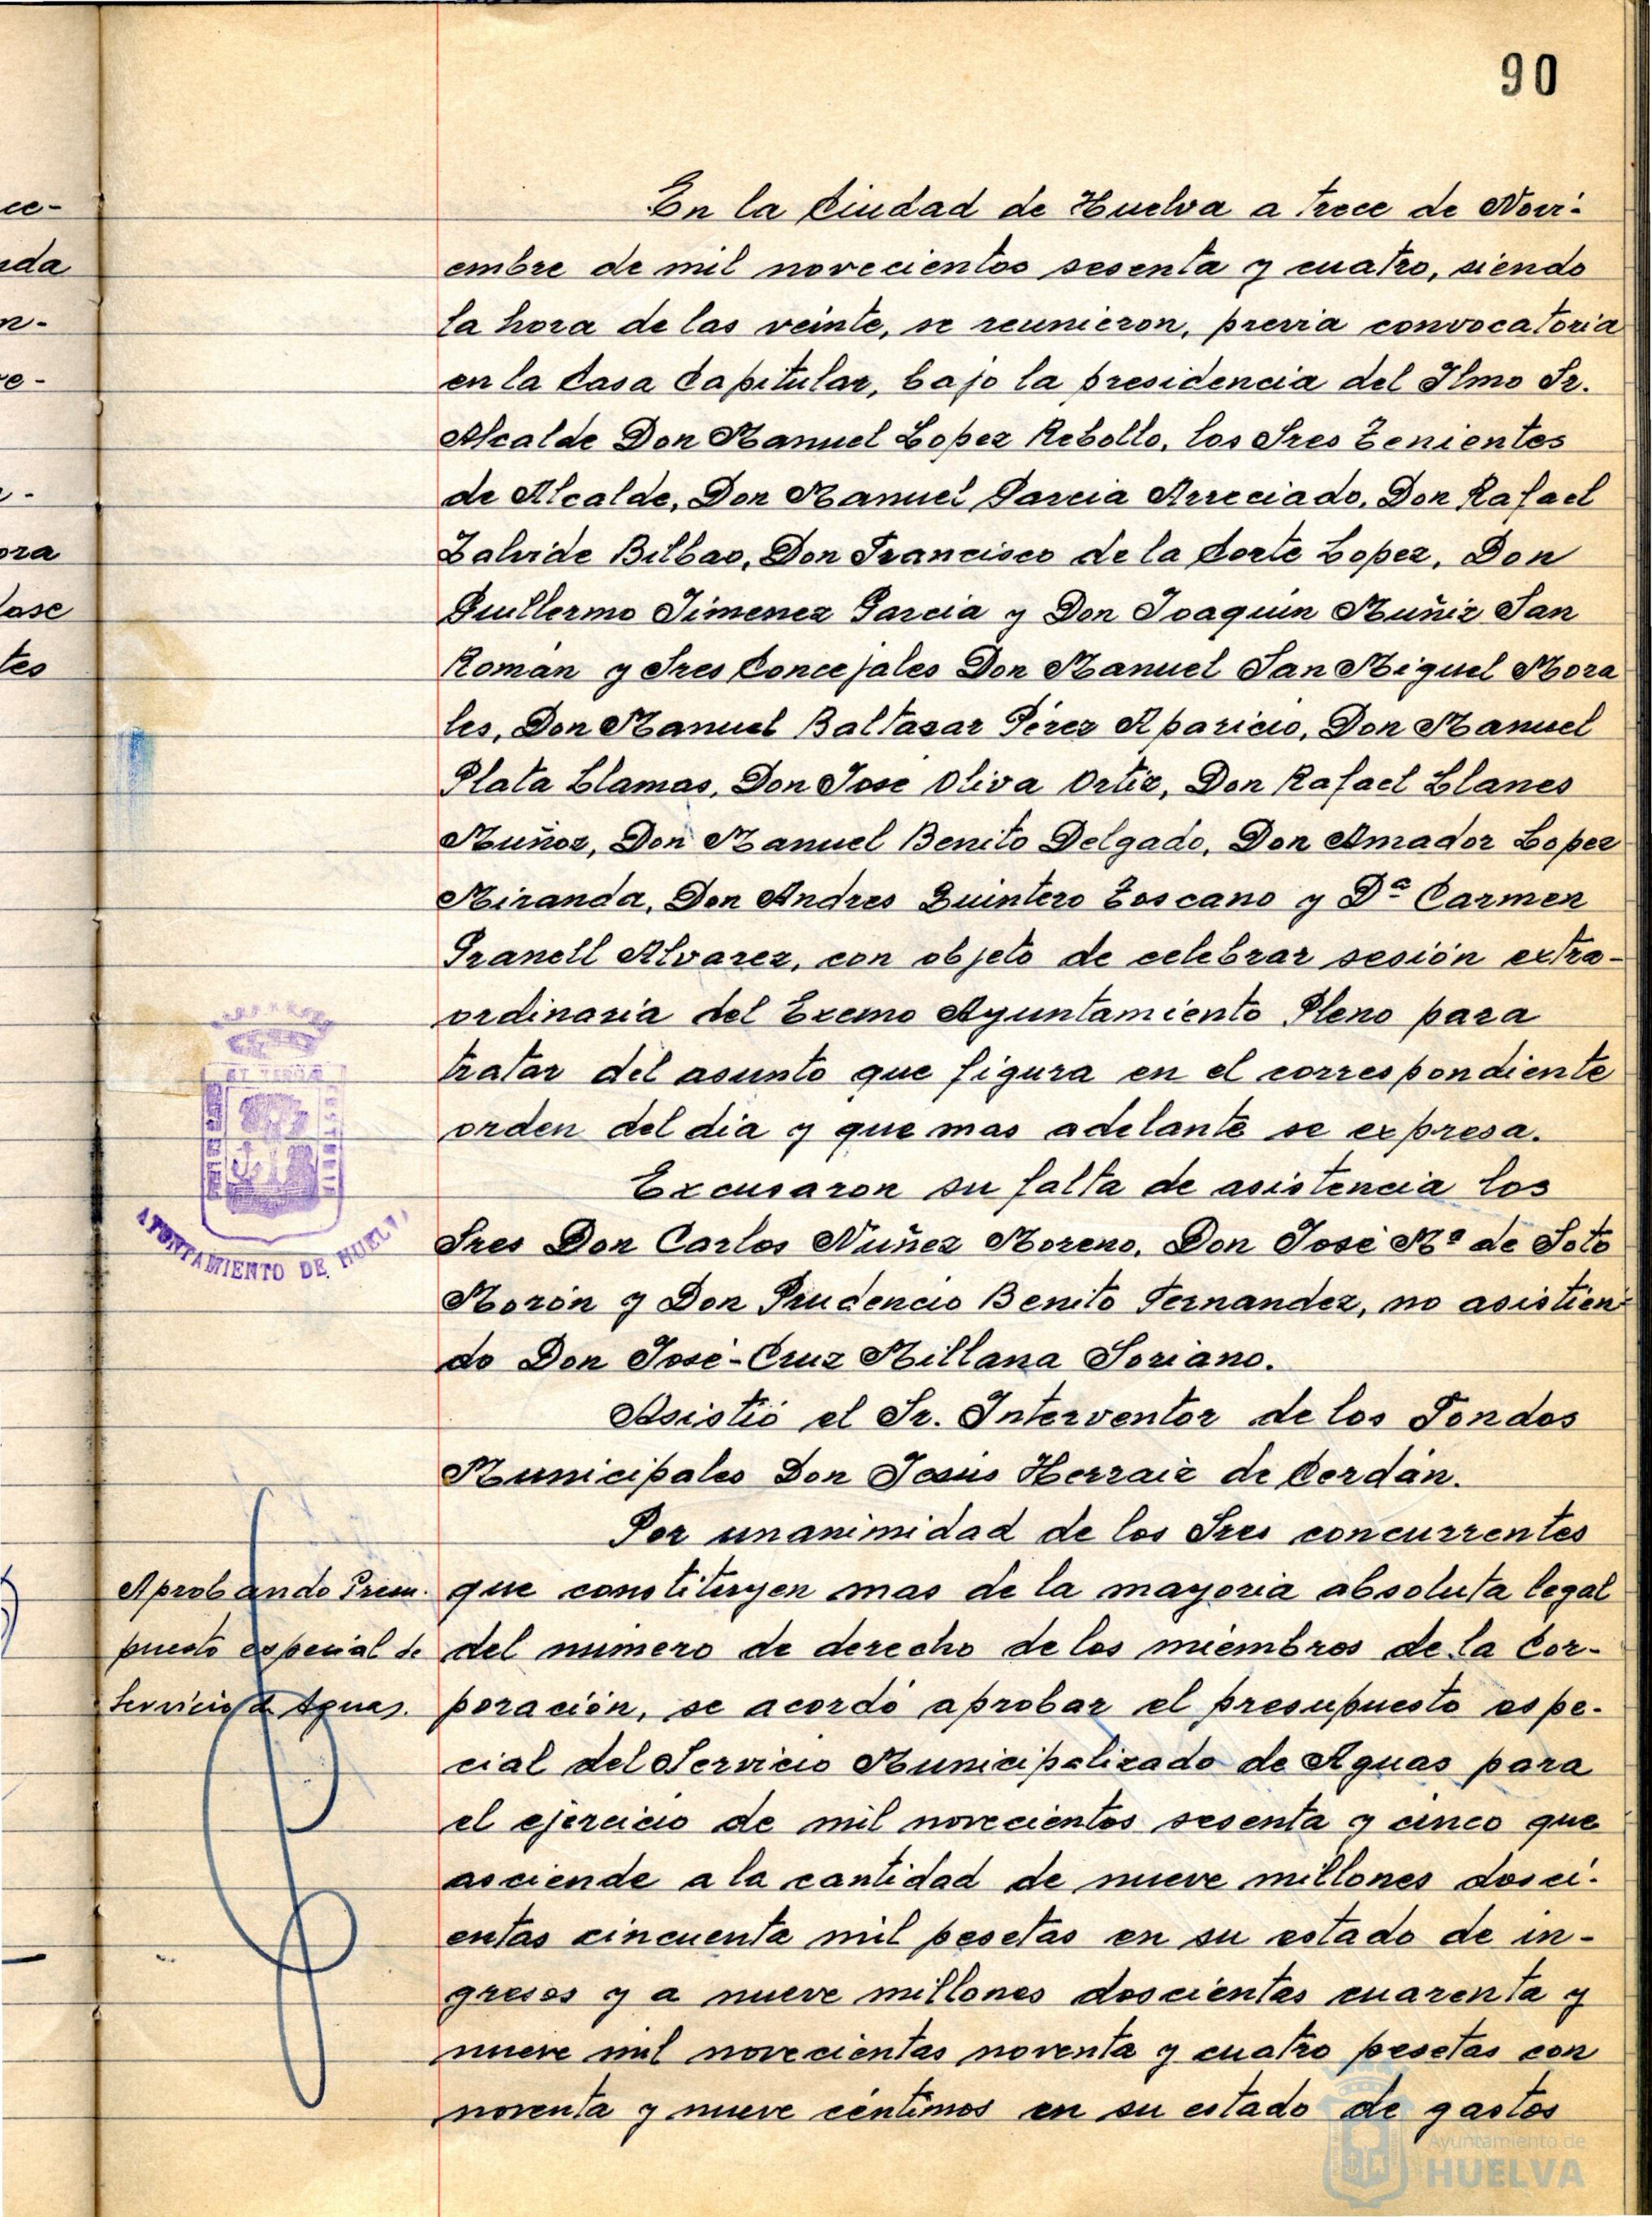 90
En la Ciudad de Huelva a trece de Novi-
embre de mil novecientos sesenta y cuatro, siendo
la hora de las veinte, se reunieron, previa convocatoria
en la Casa Capitular, bajo la presidencia del Ilmo Sr.
Alcalde Don Manuel Lopez Rebollo, los Sres Tenientes
de Alcalde, Don Manuel Garcia Arreciado, Don Rafael
Zalvide Bilbao, Don Francisco de la Corte Lopez, Don
Guillermo Jimenez Garcia y Don Joaquin Muñiz San
Román y Sres Concejales Don Manuel San Miguel Mora
les, Don Manuel Baltasar Pérez Aparicio, Don Manuel
Plata Llamas, Don Jose Oliva Ortiz, Don Rafael Llanes
Muñoz, Don Manuel Benito Delgado, Don Amador Lopez
Miranda, Don Andres Quintero Toscano y Dª Carmen
Granell Alvarez, con objeto de celebrar sesión extra-
ordinaria del Excmo Ayuntamiento Pleno para
tratar del asunto que figura en el correspondiente
orden del dia y que mas adelante se expresa.
Excusaron su falta de asistencia los
Sres Don Carlos Núñez Moreno, Don José Mª de Soto
Morón y Don Prudencio Benito Fernandez, no asistien-
do Don José-Cruz Millana Soriano.
Asistió el Sr. Interventor de los Fondos
Municipales Don Jesús Herraiz de Cerdán.
Por unanimidad de los Sres concurrentes
que constituyen mas de la mayoria absoluta legal
del número de derecho de los miembros de la Cor-
poración, se acordó aprobar el presupuesto espe-
cial del Servicio Municipalizado de Aguas para
el ejercicio de mil novecientos sesenta y cinco que
asciende a la cantidad de nueve millones dosci-
entas cincuenta mil pesetas en su estado de in-
gresos y a nueve millones doscientas cuarenta y
nueve mil novecientas noventa y cuatro pesetas con
noventa y nueve céntimos en su estado de gastos
Aprobando Presu-
puesto especial de
Servicio de Aguas.
AYUNTAMIENTO DE HUELVA
ce-
nda
n-
e-
ora
tes
Ayuntamiento de
HUELVA